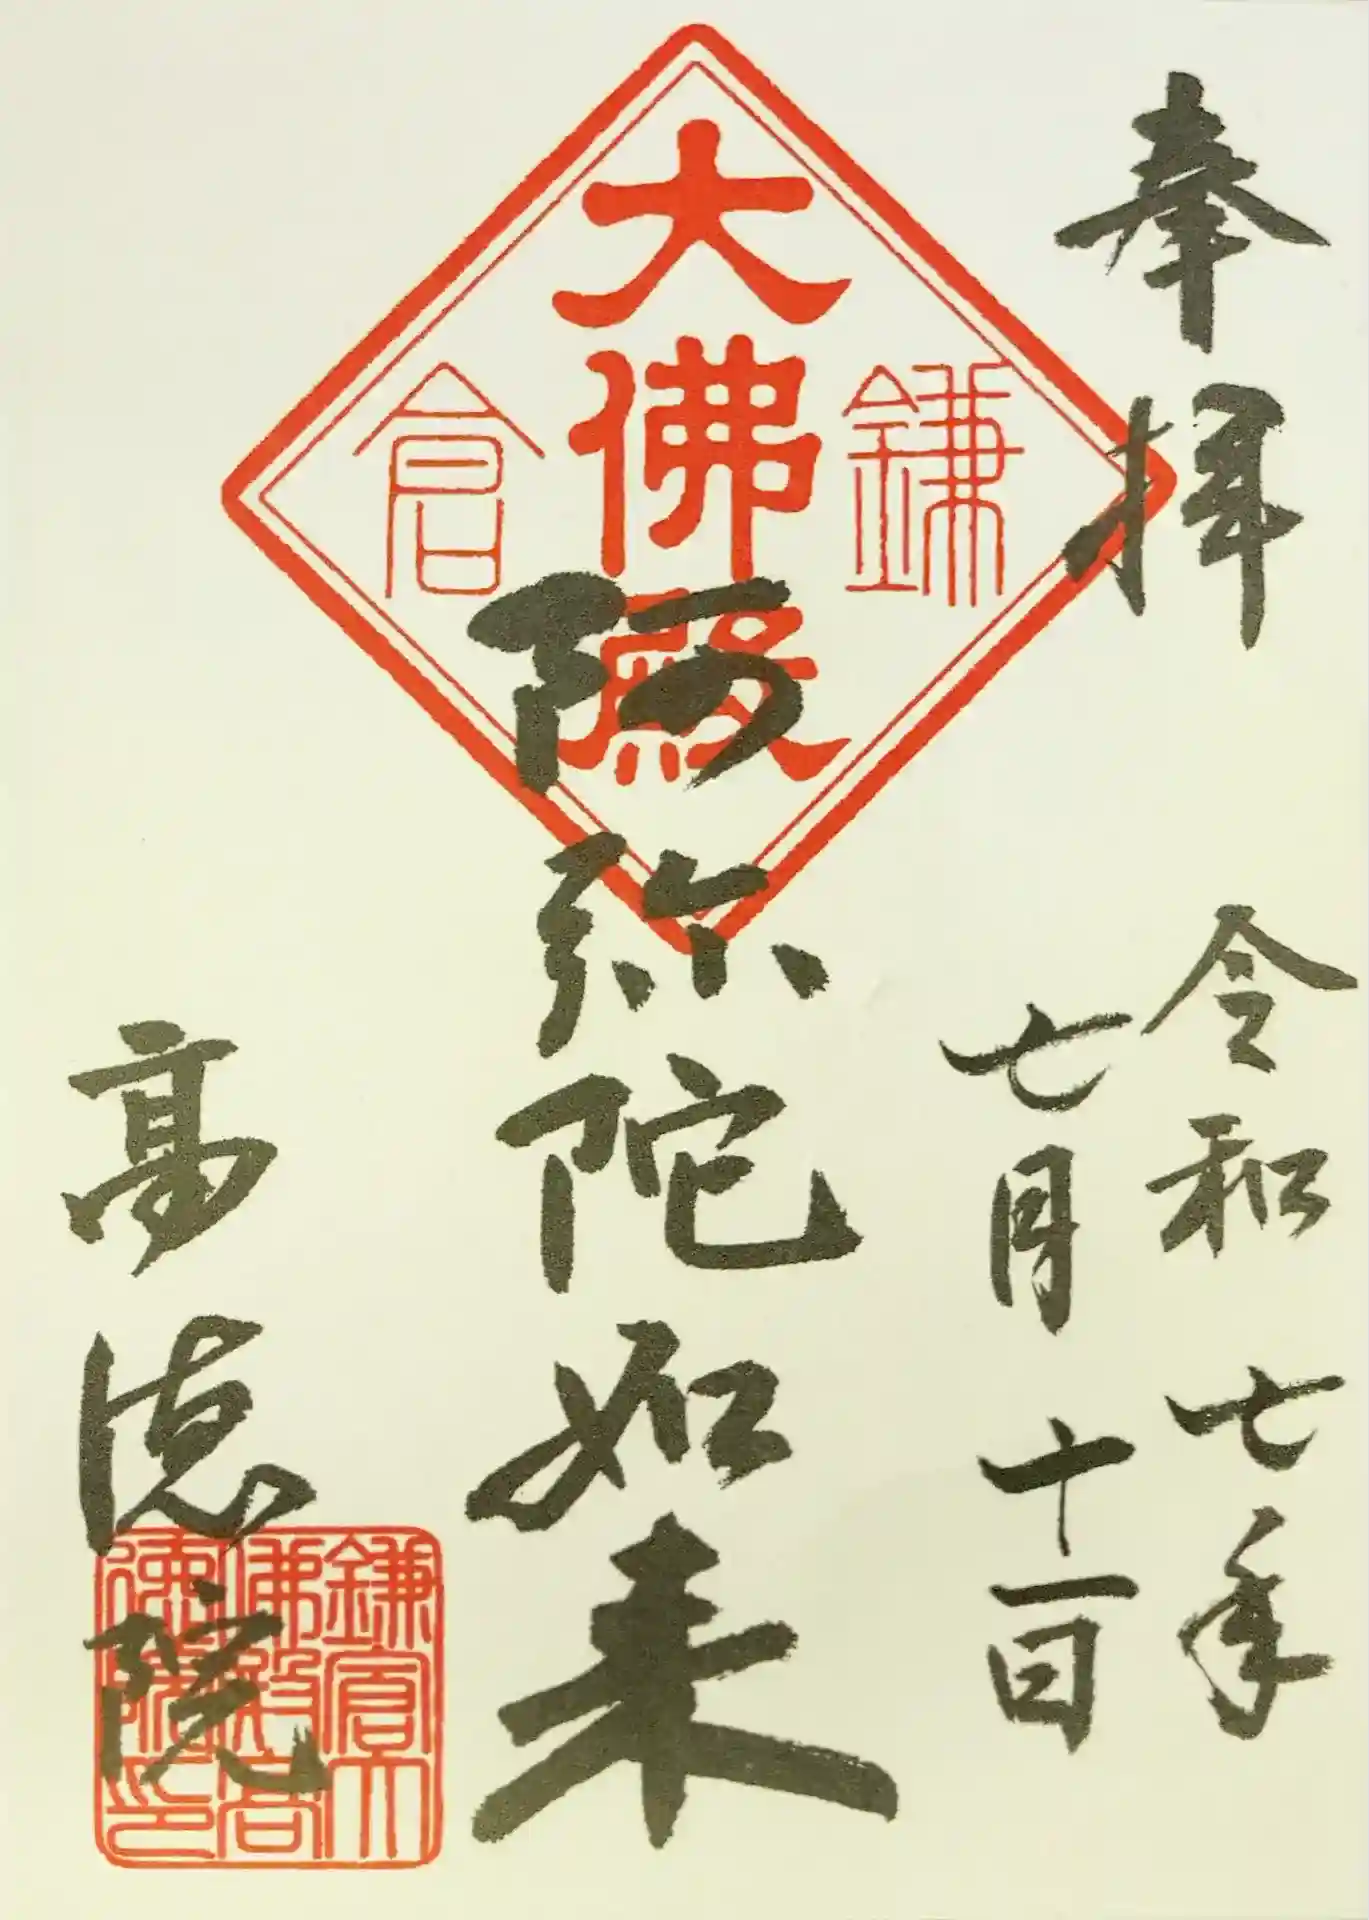 奉拝
令和七年
七月十一日
鎌倉
大佛殿
阿弥陀如来
高徳院
鎌倉大
佛殿高
徳院印